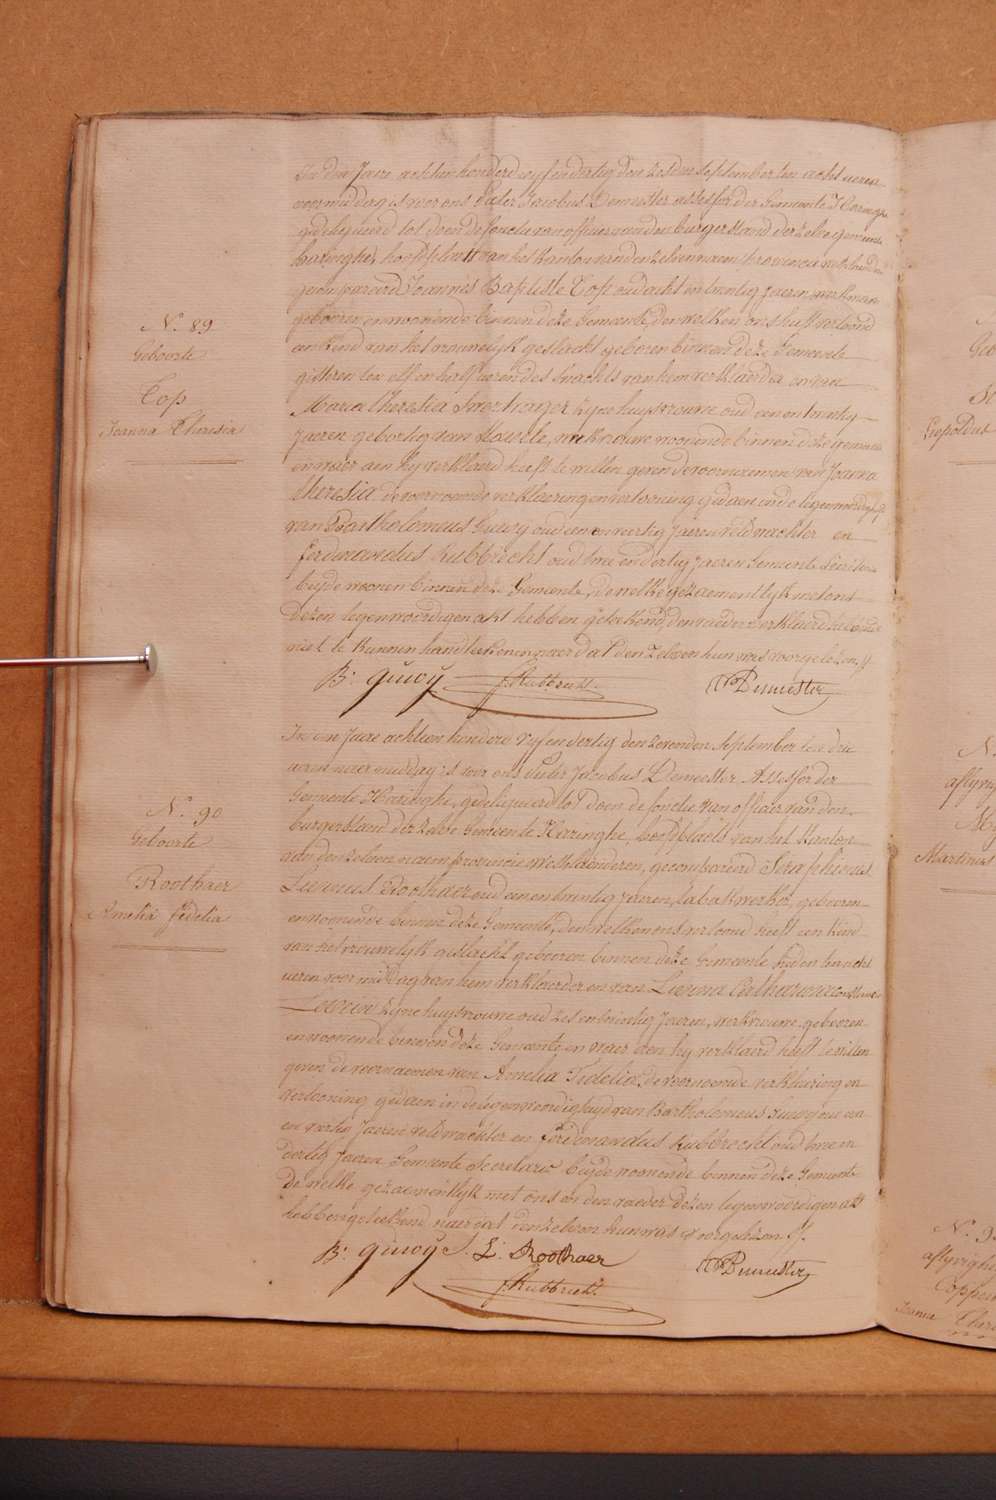 N.º 89
Geboorte
Top
Joanna Theresia
In den Jaere achtien honderd vyf en dertig den zesden September ten acht ueren
voormiddag is voor ons Pieter Jacobus Demester assessor der Gemeente Haringe
gedeligueerd tot doen de fonctie van officier van den burgerstand der zelve gemeente
haringhe, hoofdplaets van het kanton van den zelven naem provincie
gecompareerd Joannes Baptiste Top oud acht en twintig Jaeren werkman
gebooren en woonende binnen deze Gemeente, den welken ons heeft vertoond
een kind van het vrouwelyk geslacht geboren binnen deze Gemeente
gisteren ten elf en half ueren des nachts van hem verklaerder en van
Maria Theresia zyne huysvrouwe oud een en twintig
Jaeren geboortig van werkvrouwe woonende binnen deze gemeente
en waer aen hy verklaerd heeft te willen geven de voornaemen van Joanna
theresia de voornoemde verklaering en vertooning gedaen in de tegenwoordigheyd
van Bartholomeus Quwy oud een en veertig Jaeren veldwachter en
ferdinandus Rubbrecht oud twee en dertig Jaeren Gemeente Secretaris
beyde woonende binnen deze Gemeente, de welke gezaementlyk met ons
dezen tegenwoordigen akt hebben geteekend, den vaeder verklaerd hebbende
niet te kunnen handteekenen naer dat den zelven hun was voorgelezen //
B: quwy f. Rubbrecht Demester
N.º 90
Geboorte
Roothaer
Amelia fidelia
In den Jaere achtien honderd vyf en dertig den zevenden September ten drie
ueren naer middag is voor ons Pieter Jacobus Demeester Assessor der
Gemeente Haringhe, gedeligueerd tot doen de fonctie van officier van den
burgerstand der zelve Gemeente Haringhe, hoofdplaets van het Kanton
van den zelven naem provincie westvlaenderen, gecompareerd Seraphinus
Livinus Roothaer oud een en twintig Jaeren, tabakwerker, gebooren
en woonende binnen deze Gemeente, den welken ons vertoond heeft een kind
van het vrouwelyk geslacht gebooren binnen deze Gemeente heden ten acht
ueren voor middag van hem verklaerder en van Livina Catharina
zyne huysvrouwe oud zes en twintig Jaeren, werkvrouwe gebooren
en woonende binnen deze Gemeente en waer aen hy verklaerd heeft te willen
geven de voornaemen van Amelia Fidelia, de voornoemde verklaering en
vertooning gedaen in de tegenwoordigheyd van Bartholomeus Quwy oud een
en veertig Jaeren veldwachter en ferdinandus Rubbrecht oud twee en
dertig Jaeren Gemeente Secretaris beyde woonende binnen deze Gemeente
de welke gezaementlyk met ons en den vaeder dezen tegenwoordigen akt
hebben geteekend naer dat den zelven hun was voorgelezen //.
B: quwy S. L. Roothaer Demester
f. Rubbrecht
Leopoldus
Martinus
N.º 9
Joanna